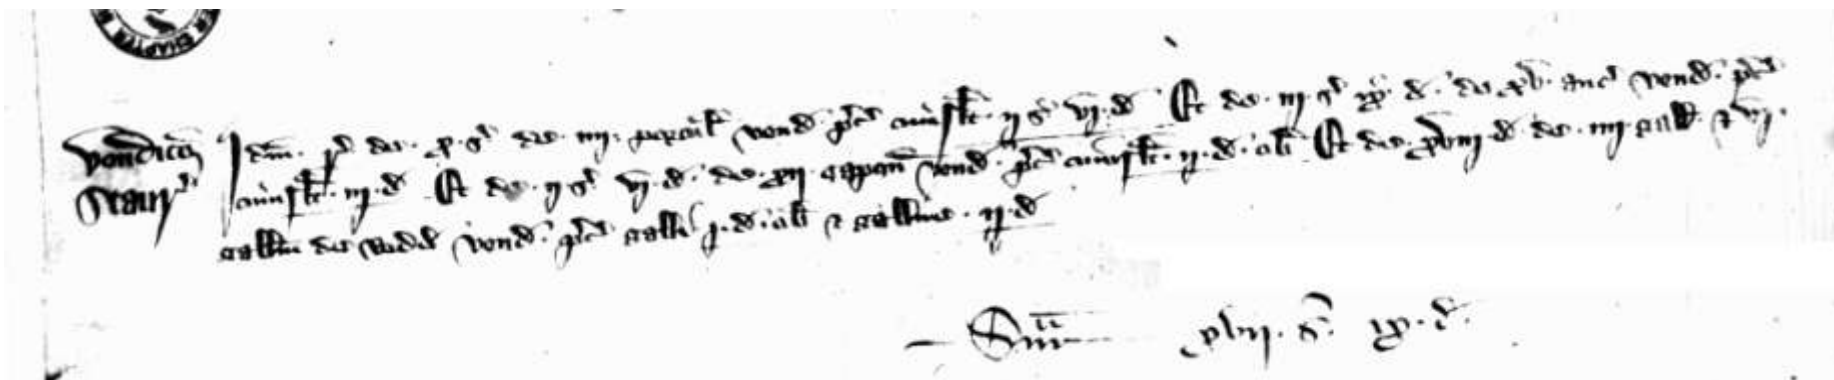 CHAPTER
Vendicio Idm̄ r' de x s' de iiij porcell' vend' prec' cuiuslt ij s' vj d' Et de iij s' ix d' de xv auc' vend' prec'
Stauri cuiuslt iij d' Et de ij s' vj d' de xij capon' vend' prec' cuiuslt ij d' ob' Et de xviij d' de iiij gall' & vj
gallin' de redd' vend' prec' galli j d' ob' & galline ij d'
Sm̄ xvij s' ix d'